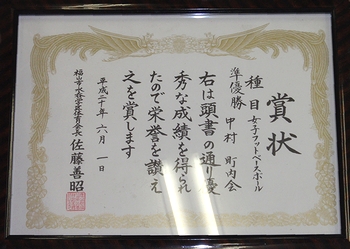 賞状
種目 女子フットベースボール
準優勝 中村 町内会
右は頭書の通り優
秀な成績を得られ
たので栄誉を讃え
之を賞します
平成二十年 六月 一日
福山市水呑学区体育会長 佐藤善昭